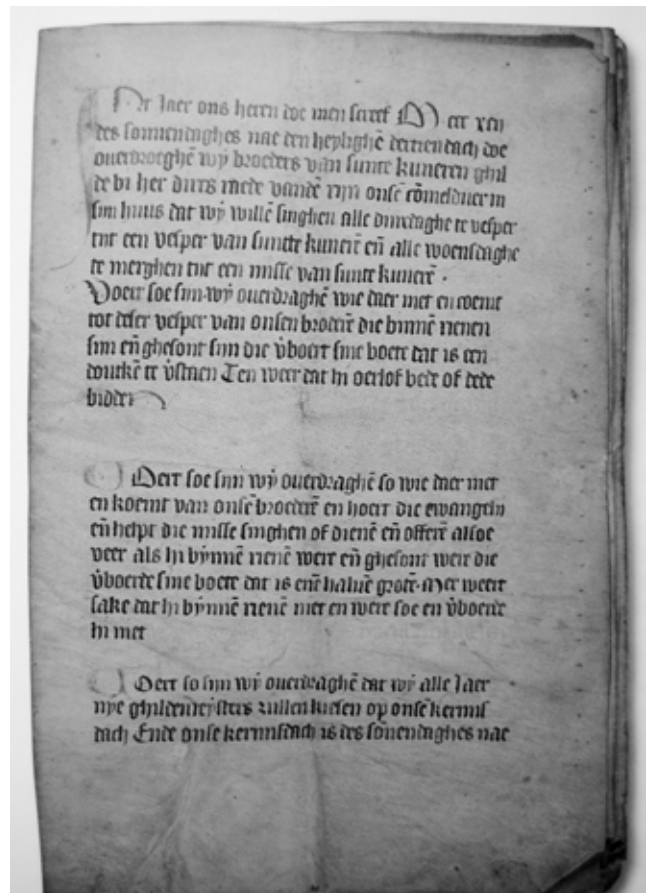 Int Jaer ons heren doe men screef M cccc xcij
des sonnendaghes nae den heylighē dertiendach doe
ouerdroeghē wÿ broeders van sunte kuneren ghil
de bi her dirts raede vandē rijn onsē cōmelduer in
sijn huus dat wÿ willē singhen alle dinxdaghe te vesper
tijt een vesper van suncte kunerē eñ alle woensdaghe
te merghen tijt een misse van sunte kunerē ·
Voert soe sijn wÿ ouerdraghē wie daer niet en coemt
tot deser vesper van onsen broderē die binnē rienen
sijn eñ ghesont sijn die v̄boert sine boete dat is een
te v̄staen Ten weer dat hi oerlof bede of dede
bidden
Oert soe sijn wÿ ouerdraghē so wie daer niet
en koemt van onsē broederē en hoert die ewangeli
eñ helpt die misse singhen of dienē eñ offerē alsoe
veer als hi bÿnnē rienē weer eñ ghesont weer die
v̄boerde sine boete dat is enē haluē grotē· Mer weert
sake dat hi bÿnnē rienē niet en weer soe en v̄boerde
hi niet
Oert so sijn wÿ ouerdraghē dat wÿ alle Jaer
nye ghildemeÿsters zullen kiesen op onsē kermis
dach Ende onse kermisdach is des sōnendaghes nae